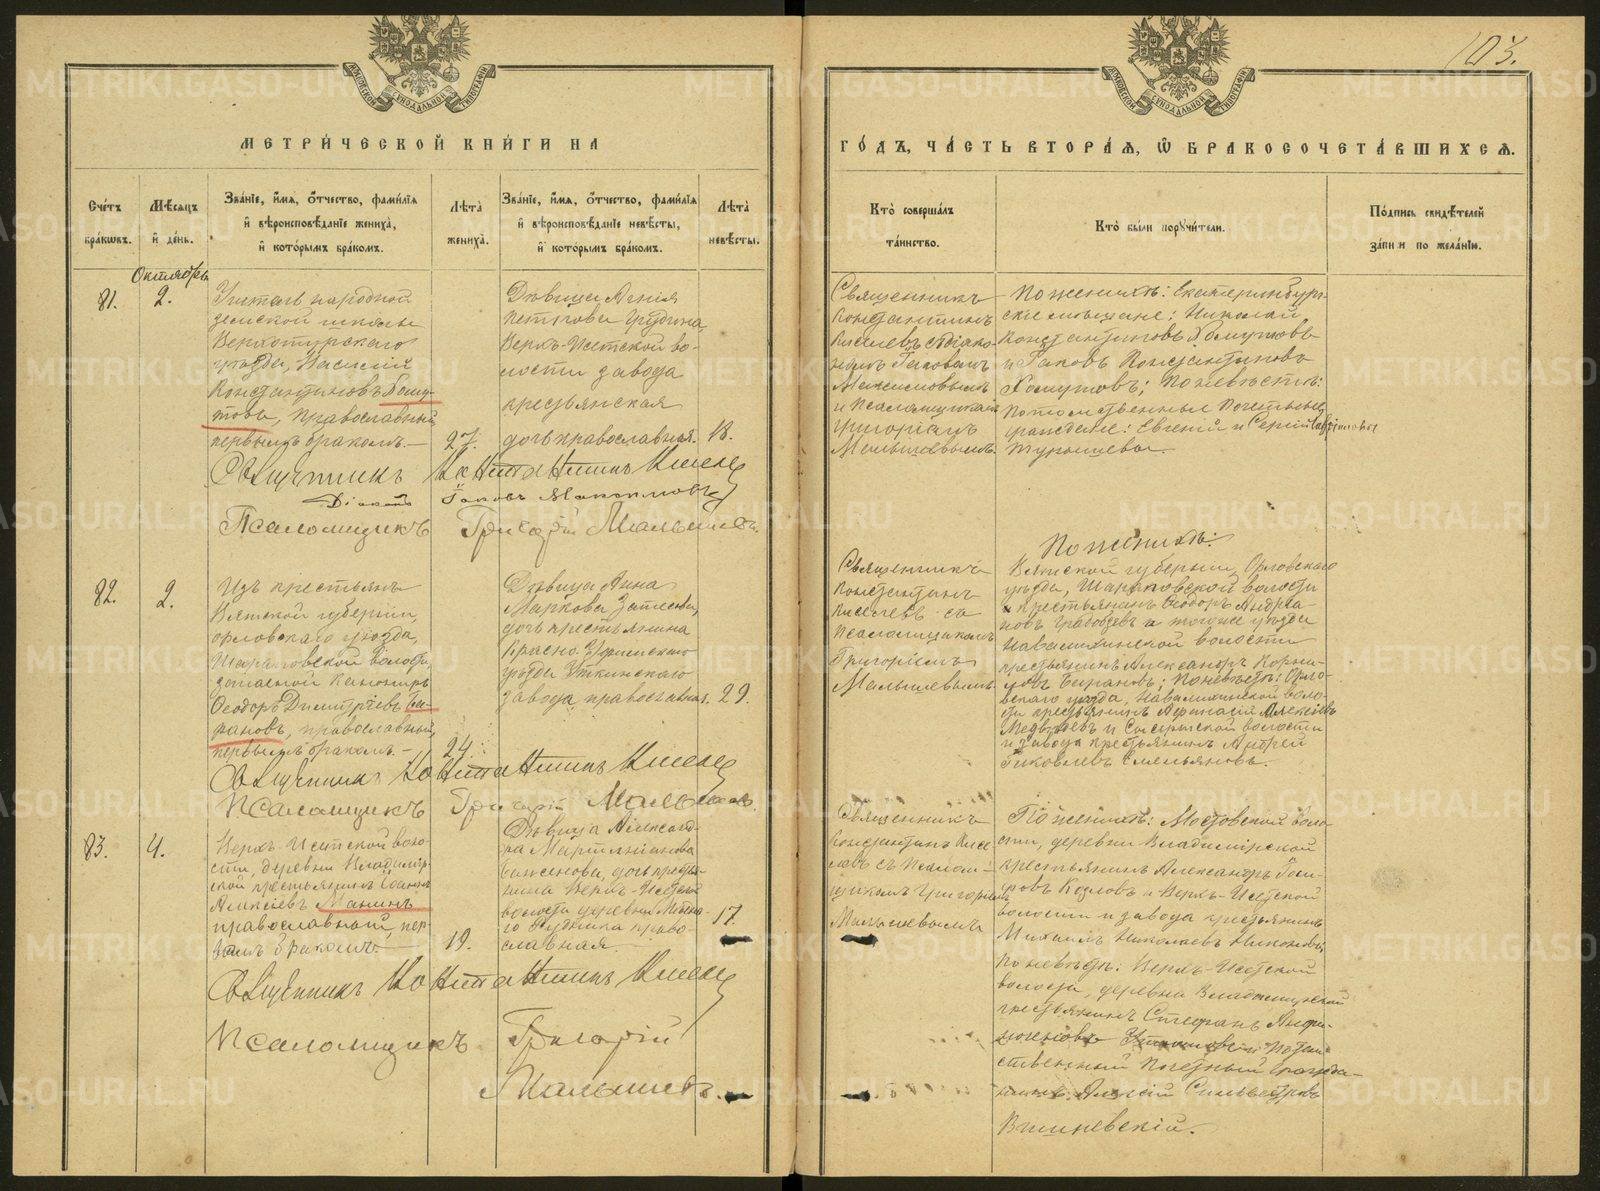 103.
МЕТРИ́ЧЕСКОЙ КНИ́ГИ НА
ГО́ДЪ, ЧА́СТЬ ВТОРА́Я, Ѡ БРАКОСОЧЕТА́ВШИХСЯ.
Сче́тъ бра́кѡвъ.
Мѣ́сяцъ и҆ де́нь.
Зва́нїе, и҆́мя, ѻ҆́тчество, фами́лїя
и҆ вѣроисповѣ́данїе жениха̀,
и҆ кото́рымъ бра́комъ.
Лѣ́та жениха̀.
Зва́нїе, и҆́мя, ѻ҆́тчество, фами́лїя
и҆ вѣроисповѣ́данїе невѣ́сты,
и҆ кото́рымъ бра́комъ.
Лѣ́та невѣ́сты.
Кто̀ соверша́лъ
та́инство.
Кто̀ бы́ли порꙋчи́тели.
По́дпись свидѣ́телей
за́писи по жела́нїю.
Октябрь
81.
2.
Учитель народной
земской школы
Верхотурскаго
уѣзда, Василій
Константиновъ Хому-
товъ, православный,
первымъ бракомъ.—
27.
Дѣвица
Петрова
Верхъ-Исетской во-
лости завода
крестьянская
дочь православная.
18.
Священникъ
Константинъ
Киселевъ
Іаковомъ
Максимовымъ
и Псаломщикомъ
Григоріемъ
Малышевымъ.
По женихѣ: Екатеринбург-
скіе мѣщане: Николай
Константиновъ Хомутовъ
и Іаковъ Константиновъ
Хомутовъ; по невѣстѣ:
потомственные Почетные
граждане: Евгеній и Сергій
Священникъ Константинъ Киселевъ
Діаконъ Іаковъ Максимовъ
Псаломщикъ Григорій Малышевъ.
82.
2.
Изъ крестьянъ
Вятской губерніи,
Орловскаго уѣзда,
волости,
запасной
Ѳеодоръ Димитріевъ Ба-
рановъ, православный,
первымъ бракомъ.—
24.
Дѣвица Анна
Маркова
дочь крестьянина
Красноуфимскаго
уѣзда Уткинскаго
завода православная.
29.
Священникъ
Константинъ
Киселевъ съ
Псаломщикомъ
Григоріемъ
Малышевымъ.
По женихѣ:
Вятской губерніи, Орловскаго
уѣзда, волости
крестьянинъ Ѳеодоръ Андреа-
новъ и того же уѣзда
волости
крестьянинъ Александръ Корни-
ловъ Барановъ; по невѣстѣ: Орло-
вскаго уѣзда, воло-
сти крестьянинъ Афанасій Алексѣевъ
Медвѣдевъ и Сысертской волости
и завода крестьянинъ Андрей
Іаковлевъ Емельяновъ.
Священникъ Константинъ Киселевъ
Псаломщикъ Григорій Малышевъ.
83.
4.
Верхъ-Исетской воло-
сти, деревни Владимір-
ской крестьянинъ Іоаннъ
Алексіевъ Манинъ
православный, пер-
вымъ бракомъ.—
19.
Дѣвица Александ-
ра
Баженова, дочь крестья-
нина Верхъ-Исетской
волости деревни
Рудника право-
славная.
17.
Священникъ
Константинъ Кисе-
левъ съ Псалом-
щикомъ Григоріемъ
Малышевымъ
По женихѣ: Мостовской воло-
сти, деревни Владимірской
крестьянинъ Александръ
Козловъ и Верхъ-Исетской
волости и завода крестьянинъ
Михаилъ Николаевъ Никоновъ;
По невѣстѣ: Верхъ-Исетской
волости, деревни Владимірской
крестьянинъ Стефанъ
и Потом-
ственный Почетный Гражда-
нинъ Алексій Сильвестровъ
Вишневскій.
Священникъ Константинъ Киселевъ
Псаломщикъ Григорій
Малышевъ.
METRIKI.GASO-URAL.RU